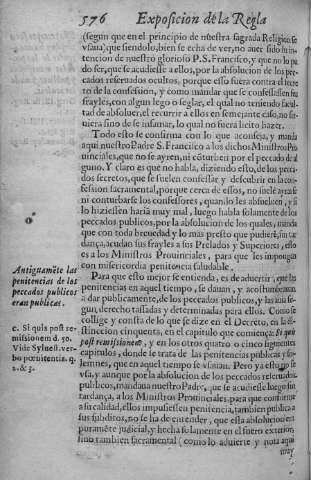 576 Exposicion de la Regla
(segun que en el principio de nuestra sagrada Religion se
vsaua) que siendolo, bien se echa de ver, no auer sido su in-
tencion de nuestro glorioso P. S. Francisco, y que no lo pu
do ser, que se acudiesse a ellos, por la absolucion de los pec-
cados reseruados ocultos, porque esto fuera contra el secre
to de la confession, y como mandar que se confessassen sus
frayles, con algun lego o seglar, el qual no teniendo facul-
tad de absoluer, el recurrir a ellos en semejante caso, no ser
uiera sino de se infamar, lo qual no fuera licito hazer.
Todo esto se confirma con lo que aconseja, y manda
aqui nuestro Padre S. Francisco a los dichos Ministros Pro
uinciales, que no se ayren, ni cõturben por el peccado de al
guno. Y claro es que no habla, diziendo esto, de los pecca-
dos secretos, que se suelen confessar y descubrir en la con-
fession sacramental, porque cerca de ellos, no suelē ayrarse
ni conturbarse los confessores, quando les absueluen, y si
lo hiziessen haria muy mal, luego habla solamente de los
peccados publicos, por la absolucion de los quales, manda
que con toda breuedad y lo mas presto que pudierē, sin tar
dança, acudan sus frayles a sus Prelados y Superiores, esto
es a los Ministros Prouinciales, para que les impongan
con misericordia penitencia saludable.
Para que esto mejor se entienda, es de aduertir, que las
penitencias en aquel tiempo, se dauan, y acostumbrauan
a dar publicamente, de los peccados publicos, y las auia se-
gun, derecho tassadas y determinadas para ellos. Como se
collige y consta de lo que se dize en el Decreto, en la di-
stincion cinquenta, en el capitulo que comiença: Si quis
post remissionem, y en los otros quatro o cinco siguientes
capitulos, donde se trata de las penitencias publicas y so-
lemnes, que en aquel tiempo se vsauan. Pero ya esto no se
vsa, y aunque por la absolucion de los peccados reseruados
publicos, mandaua nuestro Padre, que se acudiesse luego sin
tardança, a los Ministros Prouinciales, para que conforme
a su calidad, ellos impusiessen penitencia, tambien publica a
sus subditos, no se ha de entender, que esta absolucion era
puramēte judicial, y hecha solamente en el fuero exterior,
sino tambien sacramental (como lo aduierte y nota aqui
muy
Antiguamēte las
penitencias de los
peccados publicos
eran publicas.
c. Si quis post re-
missionem d. 50.
Vide Sylvest. ver-
bo pœnitentia. q.
2. & 3.